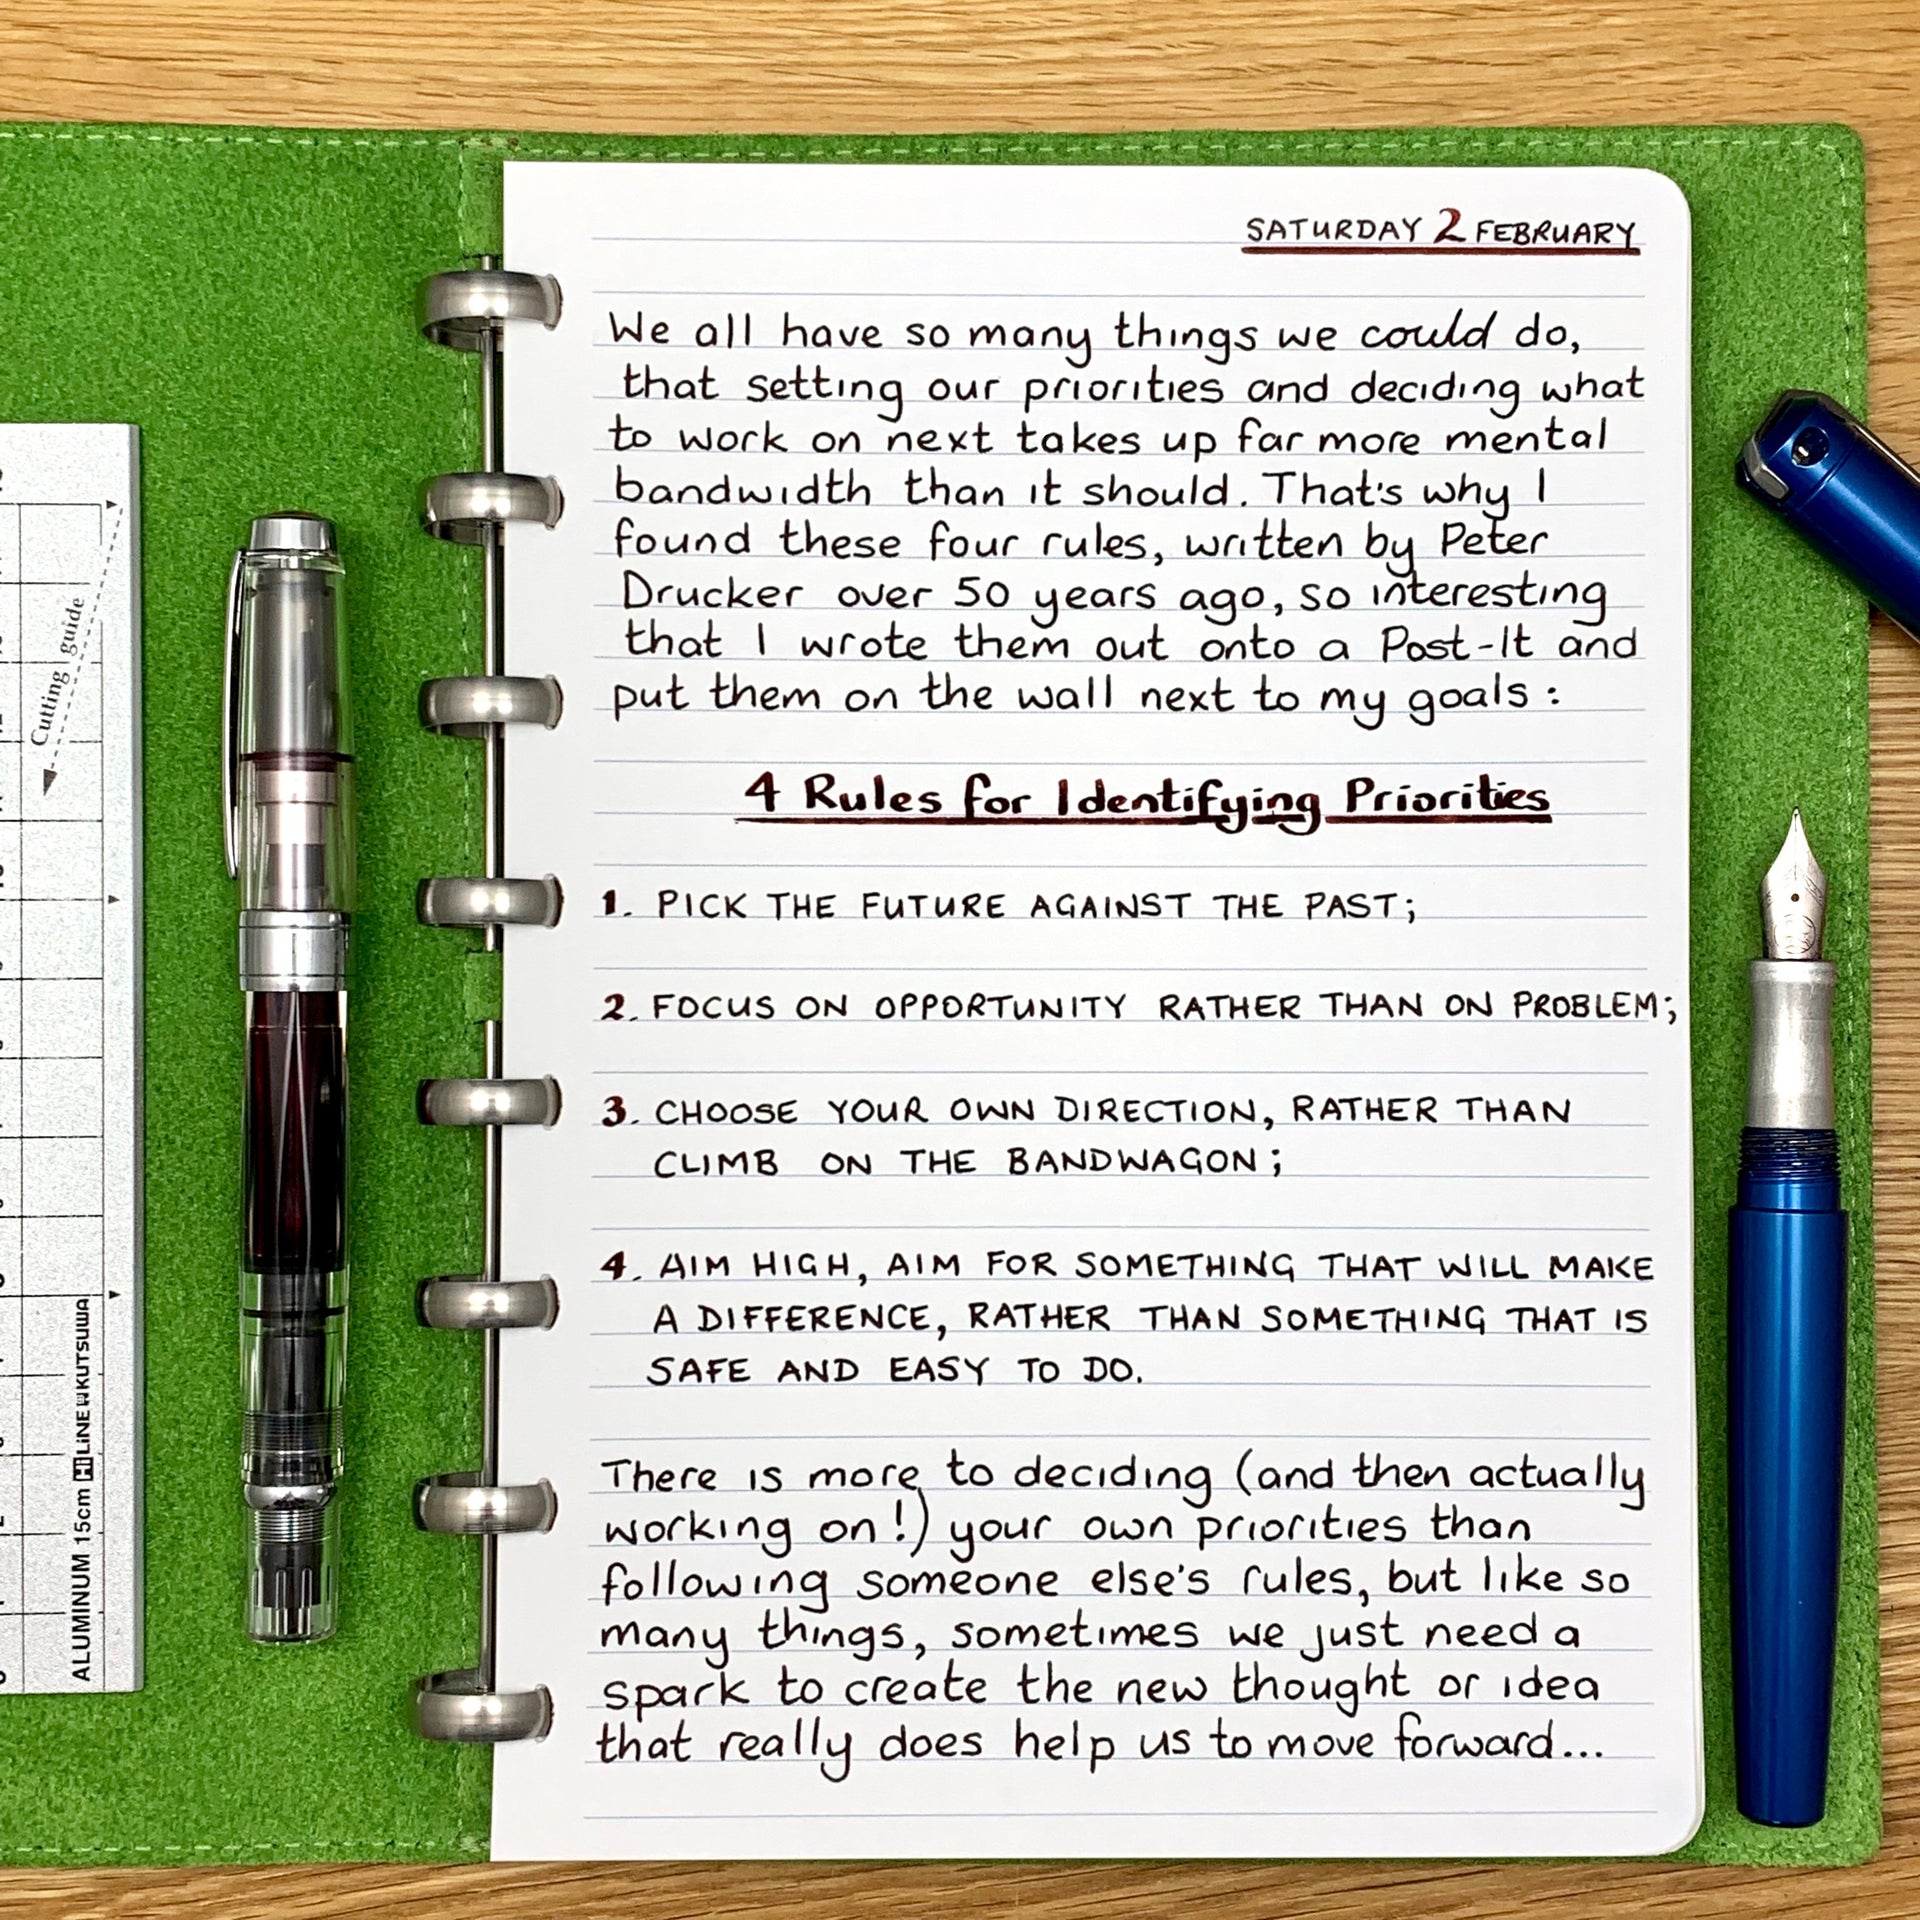 SATURDAY 2 FEBRUARY
We all have so many things we could do,
that setting our priorities and deciding what
to work on next takes up far more mental
bandwidth than it should. That's why I
found these four rules, written by Peter
Drucker over 50 years ago, so interesting
that I wrote them out onto a Post-It and
put them on the wall next to my goals:
4 Rules for Identifying Priorities
1. PICK THE FUTURE AGAINST THE PAST;
2. FOCUS ON OPPORTUNITY RATHER THAN ON PROBLEM;
3. CHOOSE YOUR OWN DIRECTION, RATHER THAN
CLIMB ON THE BANDWAGON;
4. AIM HIGH, AIM FOR SOMETHING THAT WILL MAKE
A DIFFERENCE, RATHER THAN SOMETHING THAT IS
SAFE AND EASY TO DO.
There is more to deciding (and then actually
working on!) your own priorities than
following someone else's rules, but like so
many things, sometimes we just need a
spark to create the new thought or idea
that really does help us to move forward...
Cutting guide
ALUMINUM 15cm HiLiNE KUTSUWA